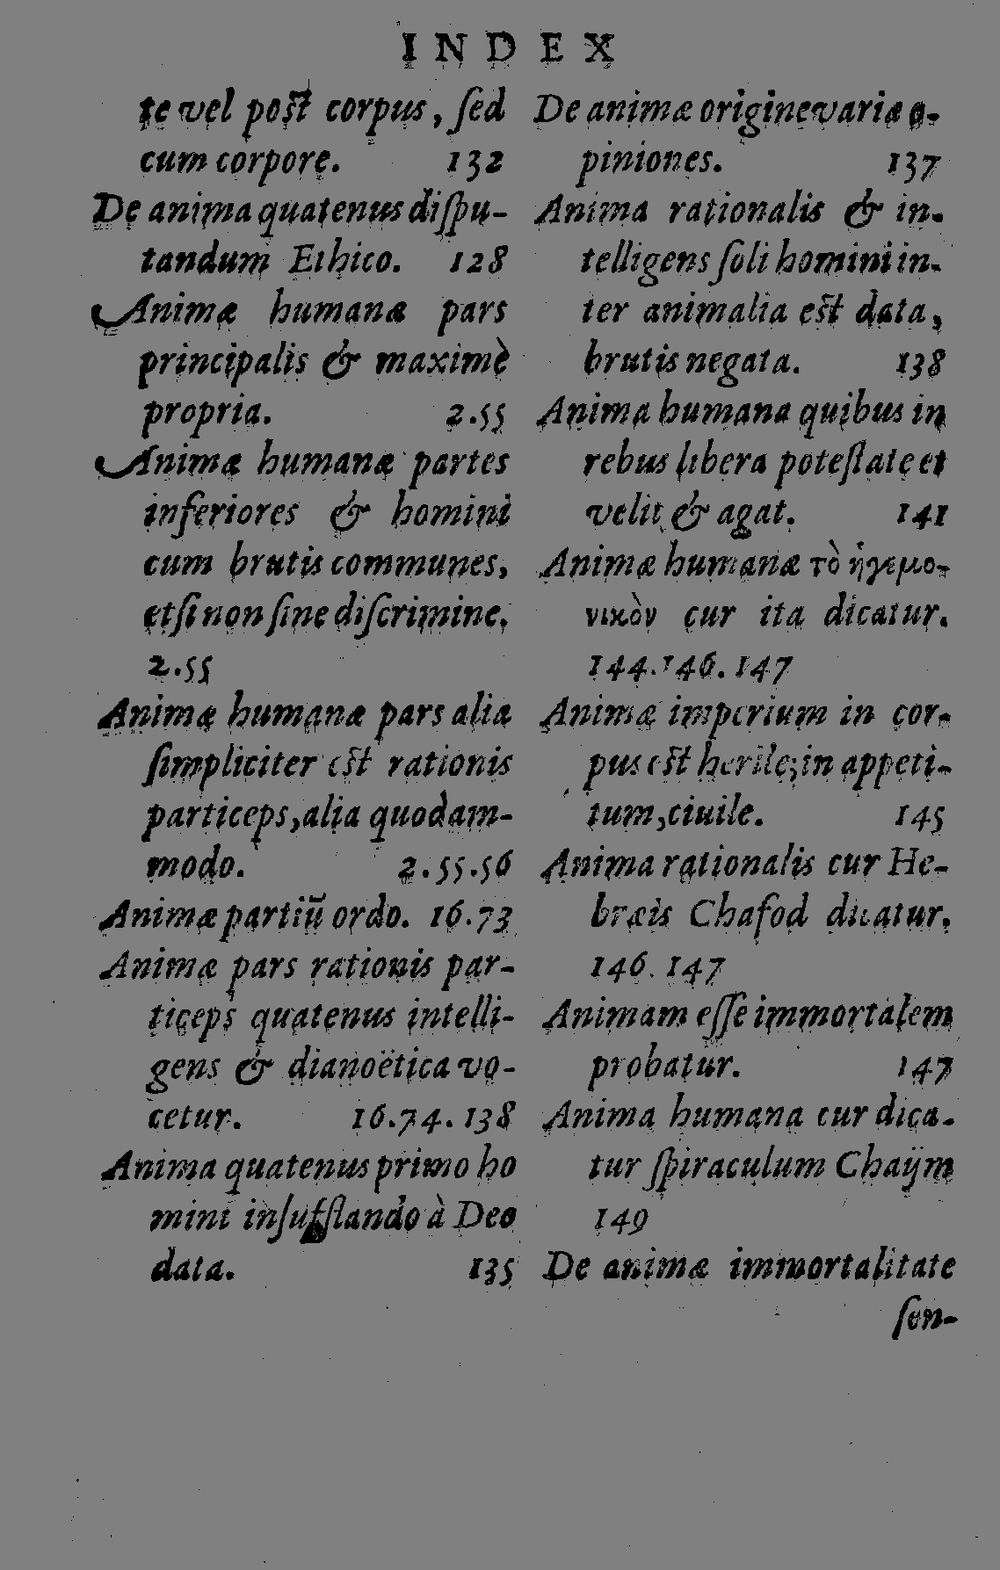 INDEX
te vel post corpus, ſed
cum corpore. 132
De anima quatenus diſpu-
tandum Ethico. 128
Animæ humanæ pars
principalis & maximè
propria. 2.55
Animæ humanæ partes
inferiores & homini
cum brutis communes,
etſi non ſine diſcrimine.
2.55
Animæ humanæ pars alia
ſimpliciter est rationis
particeps, alia quodam-
modo. 2.55.56
Animæ partiū ordo. 16.73
Animæ pars rationis par-
ticeps quatenus intelli-
gens & dianoëtica vo-
cetur. 16.74.138
Anima quatenus primo ho
mini inſufflando à Deo
data. 135
De animæ origine variæ o-
piniones. 137
Anima rationalis & in-
telligens ſoli homini in-
ter animalia est data,
brutis negata. 138
Anima humana quibus in
rebus libera poteſtate et
velit & agat. 141
Animæ humanæ τὸ ἡγεμο-
νικὸν cur ita dicatur.
144.146.147
Animæ imperium in cor-
pus est herile; in appeti-
tum, ciuile. 145
Anima rationalis cur He-
bræis Chafod dicatur.
146.147
Animam eſſe immortalem
probatur. 147
Anima humana cur dica-
tur ſpiraculum Chaijm
149
De animæ immortalitate
ſen-